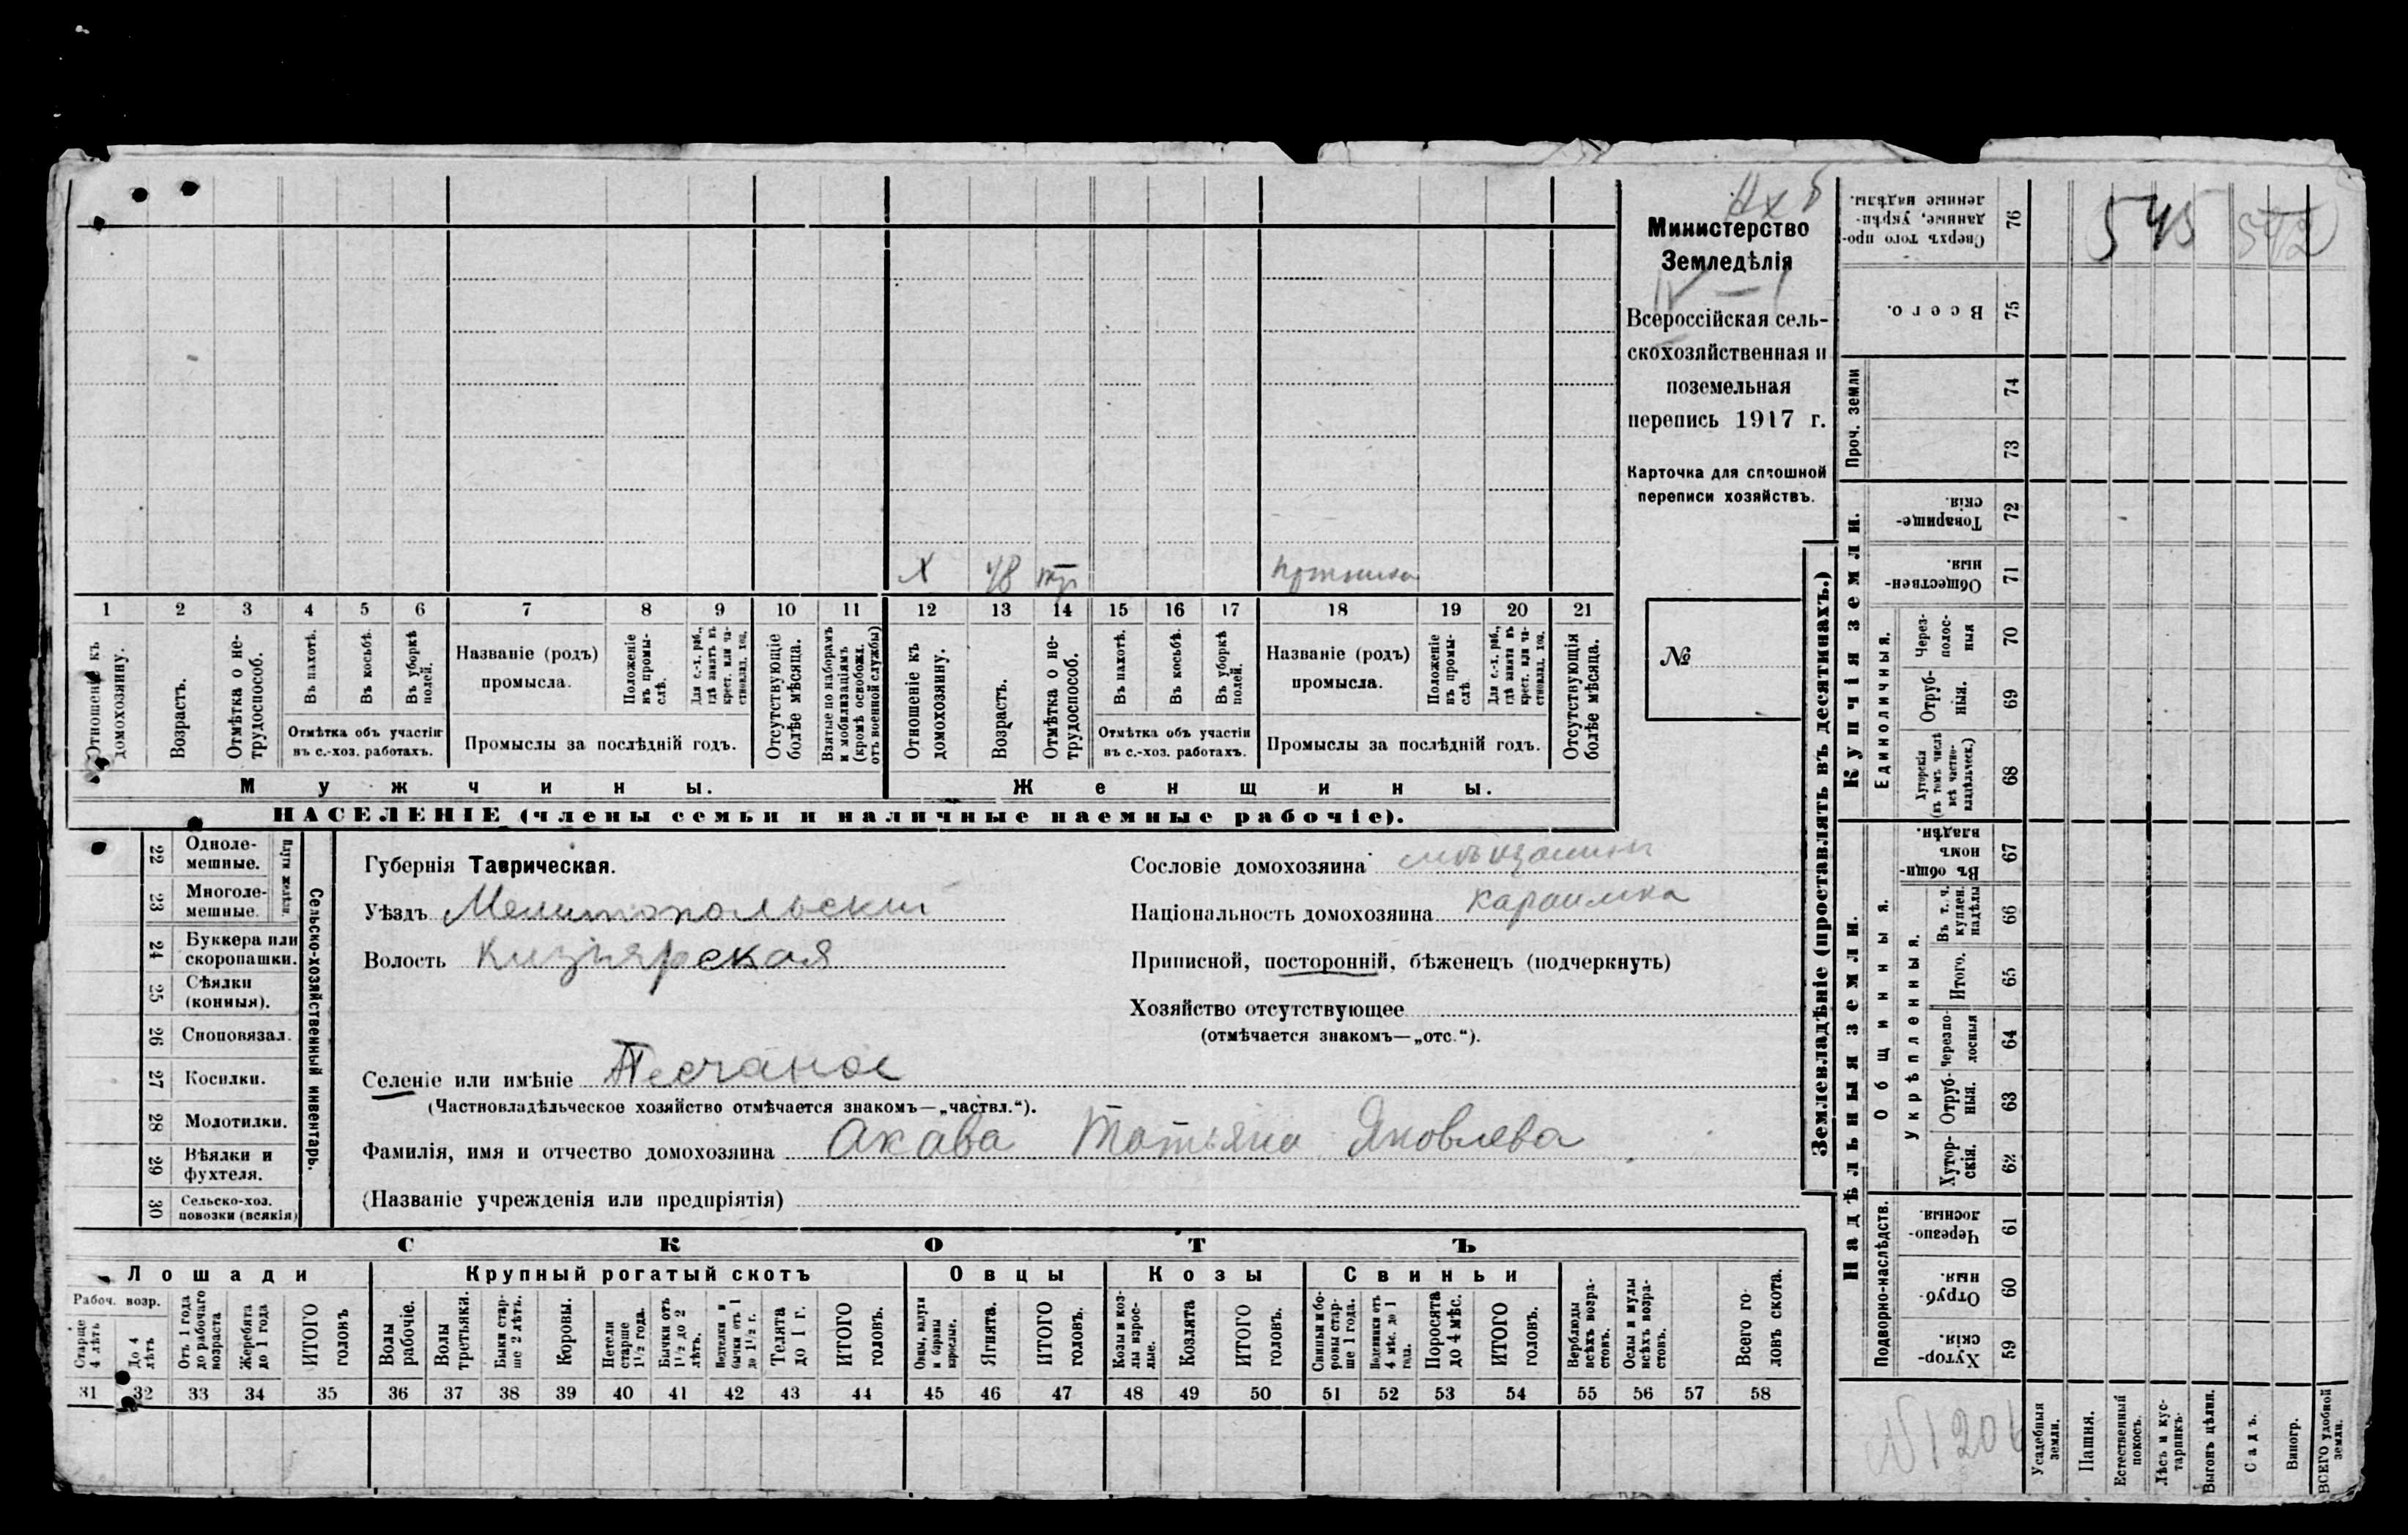 Нхб
Министерство
Земледѣлія
IV — 1
Всероссійская сель-
скохозяйственная и
поземельная
перепись 1917 г.
Карточка для сплошной
переписи хозяйствъ.
№
Х 48
1 2 3 4 5 6 7 8 9 10 11 12 13 14 15 16 17 18 19 20 21
Отношеніе къ домохозяину.
Возрастъ.
Отмѣтка о не-трудоспособ.
Въ пахотѣ.
Въ косьбѣ.
Въ уборкѣ полей.
Отмѣтка объ участіи
въ с.-хоз. работахъ.
Названіе (родъ)
промысла.
Положеніе въ промы-слѣ.
Для с.-х. раб., гдѣ занятъ въ крест. или ча-стновлад. хоз.
Промыслы за послѣдній годъ.
Отсутствующіе болѣе мѣсяца.
Взятые по наборамъ и мобилизаціямъ (кромѣ освобожд. отъ военной службы)
Отношеніе къ домохозяину.
Возрастъ.
Отмѣтка о не-трудоспособ.
Въ пахотѣ.
Въ косьбѣ.
Въ уборкѣ полей.
Отмѣтка объ участіи
въ с.-хоз. работахъ.
Названіе (родъ)
промысла.
Положеніе въ промы-слѣ.
Для с.-х. раб., гдѣ занята въ крест. или ча-стновлад. хоз.
Промыслы за послѣдній годъ.
Отсутствующія болѣе мѣсяца.
Мужчины.
Женщины.
НАСЕЛЕНІЕ (члены семьи и наличные наемные рабочіе).
22 Одноле-мешные.
23 Многоле-мешные.
Плуги желѣзн.
24 Буккера или скоропашки.
25 Сѣялки (конныя).
26 Сноповязал.
27 Косилки.
28 Молотилки.
29 Вѣялки и фухтеля.
30 Сельско-хоз. повозки (всякія)
Сельско-хозяйственный инвентарь.
Губернія Таврическая.
Уѣздъ Мелитопольскій
Волость Кизіярская
Селеніе или имѣніе Песчаное
(Частновладѣльческое хозяйство отмѣчается знакомъ—„частвл.“).
Фамилія, имя и отчество домохозяина Акава Татьяна Яковлева
(Названіе учрежденія или предпріятія)
Сословіе домохозяина мѣщанин
Національность домохозяина караимка
Приписной, посторонній, бѣженецъ (подчеркнуть)
Хозяйство отсутствующее
(отмѣчается знакомъ—„отс.“).
СКОТЪ
Лошади
Крупный рогатый скотъ
Овцы
Козы
Свиньи
Рабоч. возр.
Старше 4 лѣтъ
До 4 лѣтъ
Отъ 1 года до рабочаго возраста
Жеребята до 1 года
ИТОГО головъ
Волы рабочіе.
Волы третьяки.
Быки стар-ше 2 лѣтъ.
Коровы.
Нетели старше 1½ года.
Бычки отъ 1½ до 2 лѣтъ.
Нетелки и бычки отъ 1 до 1½ г.
Телята до 1 г.
ИТОГО головъ.
Овцы, валухи и бараны взрослые.
Ягнята.
ИТОГО головъ.
Козы и коз-лы взрос-лые.
Козлята
ИТОГО головъ.
Свиньи и бо-ровы стар-ше 1 года.
Подсвинки отъ 4 мѣс. до 1 года.
Поросята до 4 мѣс.
ИТОГО головъ.
Верблюды всѣхъ возра-стовъ.
Ослы и мулы всѣхъ возра-стовъ.
Всего го-ловъ скота.
31 32 33 34 35 36 37 38 39 40 41 42 43 44 45 46 47 48 49 50 51 52 53 54 55 56 57 58
Землевладѣніе (проставлять въ десятинахъ.)
Купчія земли.
Надѣльныя земли.
Сверхъ того про-данные, укрѣп-ленные надѣлы. 76
545 542
Всего. 75
Проч. земли
74
73
Товарище-скія. 72
Обществен-ныя. 71
Единоличныя.
Через-полос-ныя 70
Отруб-ныя. 69
Хуторскія (въ томъ числѣ всѣ частно-владѣльческ.) 68
Въ общин-номъ владѣн. 67
Общинныя.
Укрѣпленныя.
Въ т. ч. куплен. надѣлы 66
Итого. 65
Черезпо-лосныя 64
Отруб-ныя. 63
Хутор-скія. 62
Подворно-наслѣдств.
Черезпо-лосныя. 61
Отруб-ныя. 60
Хутор-скія. 59
Усадебныя земли.
Пашня.
Естественный покосъ.
Лѣсъ и кус-тарникъ.
Выгонъ цѣлин.
Садъ.
Виногр.
ВСЕГО удобной земли.